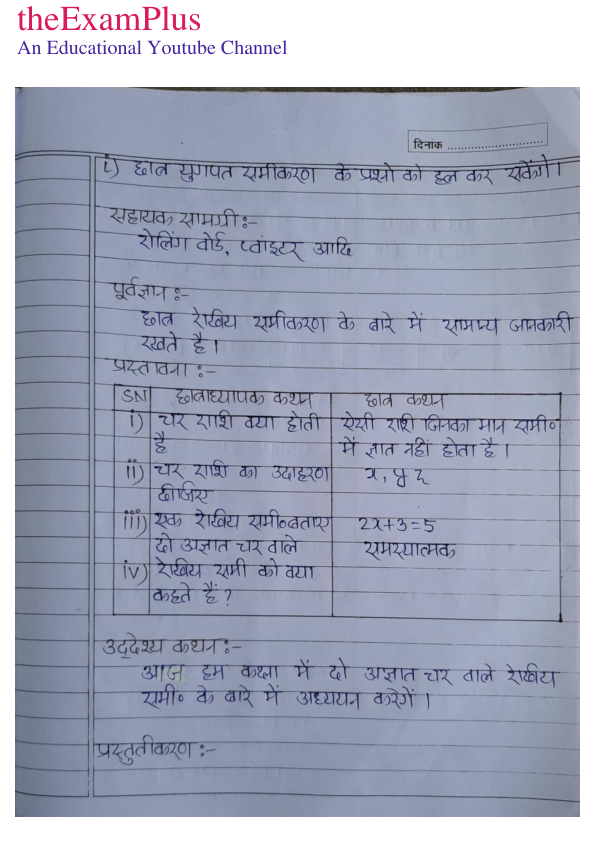 theExamPlus
An Educational Youtube Channel
दिनांक ..............................
i) छात्र युगपत समीकरण के प्रश्नो को हल कर सकेंगे।
सहायक सामग्री :-
रोलिंग वोर्ड, प्वांइटर आदि
पूर्वज्ञान :-
छात्र रेखिय समीकरण के बारे में सामान्य जानकारी
रखते है।
प्रस्तावना :-
SN छात्राध्यापक कथन छात्र कथन
i) चर राशि क्या होती ऐसी राशि जिनका मान समी०
है में ज्ञात नहीं होता है।
ii) चर राशि का उदाहरण x, y z
दीजिए
iii) एक रेखिय समी० बताए 2x+3=5
दो अज्ञात चर वाले समस्यात्मक
iv) रेखिय समी को क्या
कहते हैं?
उद्देश्य कथन :-
आज हम कक्षा में दो अज्ञात चर वाले रेखिय
समी० के बारे में अध्ययन करेगें।
प्रस्तुतीकरण :-